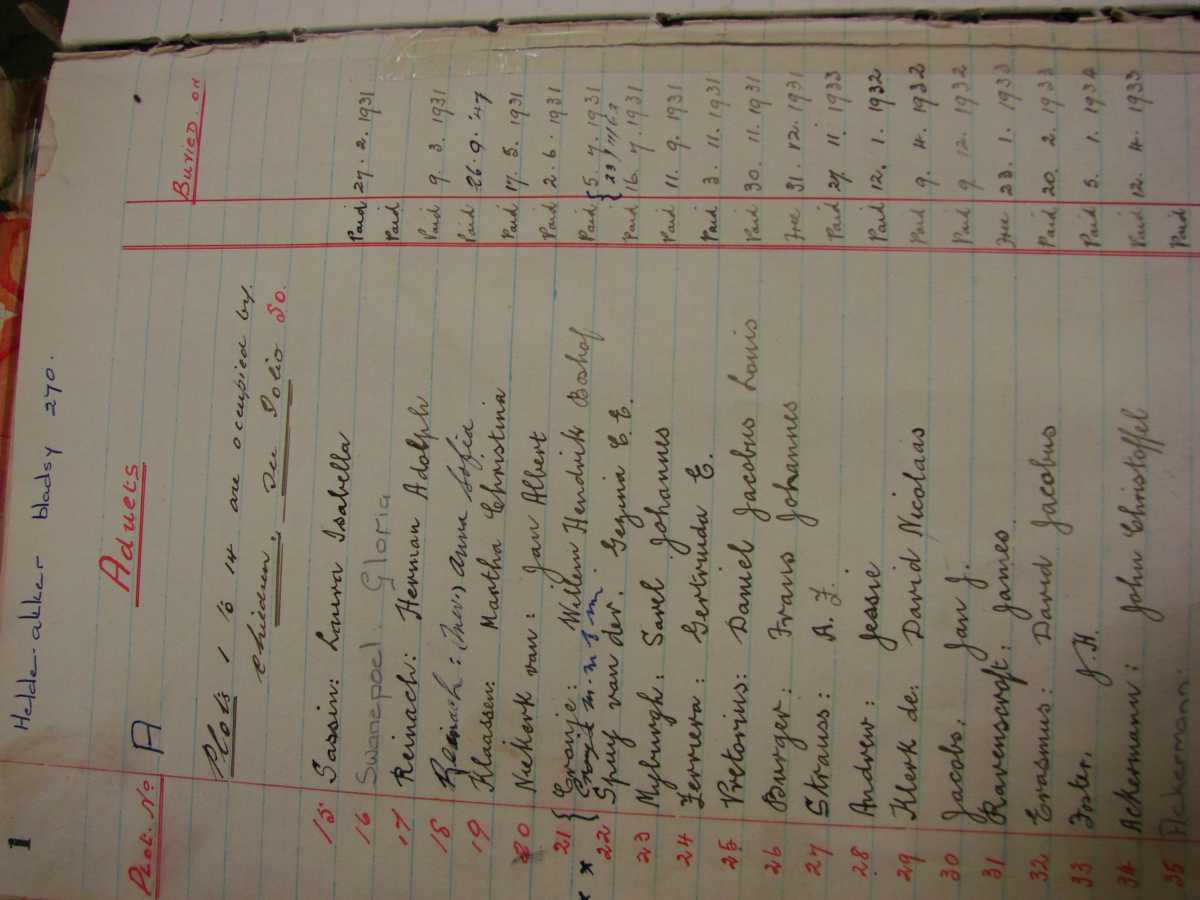 1 Helde-akker bladsy 270.
Plot. No A Aduets Buried. on
Plots 1 to 14 are occupied by
Children, See Folio 50.
15 Sassin: Laura Isabella Paid 27. 2. 1931
16 Swanepoel. Gloria Paid
17 Reinach: Herman Adolph Paid 9. 3. 1931
18 Reinach: (Mrs) Anna Sofia Paid 26. 9. '47
19 Klaassen: Martha Christina Paid 17. 5. 1931
20 Niekerk van: Jan Albert Paid 2. 6. 1931
21 { Cronje: Willem Hendrik Boshof Paid { 5. 7. 1931
x { M. M. S. M. { 23
x 22 Spuy van der. Gezina C. E. Paid 16. 7. 1931
23 Myburgh: Sarel Johannes Paid 11. 9. 1931
24 Ferreira: Gertruida E. Paid 3. 11. 1931
25 Pretorius: Daniel Jacobus Louis Paid 30. 11. 1931
26 Burger: Frans Johannes Free 31. 12. 1931
27 Strauss: A. F. Paid 27. 11. 1933
28 Andrew: Jessie Paid 12. 1. 1932
29 Klerk de: David Nicolaas Paid 9. 4. 1932
30 Jacobs: Jan J. Paid 9. 12. 1932
31 Ravenscroft: James Free 23. 1. 1933
32 Erasmus: David Jacobus Paid 20. 2. 1933
33 Foster. J. H. Paid 5. 1. 1934
34 Ackermann: John Christoffel Paid 12. 4. 1933
35 Ackerman: Paid